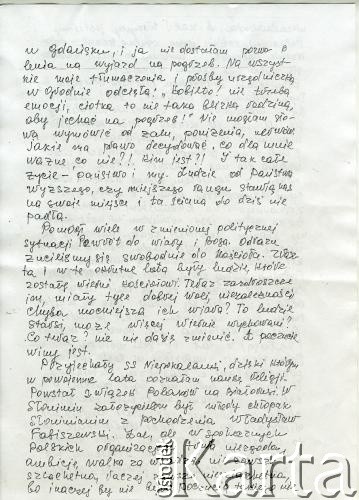 w Gdańsku, i ja nie dostałam pozwo
lenia na wyjazd na pogrzeb. Na wszyst
kie moje tłumaczenia i prośby urzędniczka
w Grodnie odcięła: "Kobieto! nie trzeba
emocji, ciotka to nie taka bliska rodzina,
aby jechać na pogrzeb!" Nie mogłam sło-
wa wymówić od żalu, poniżenia, nerwów.
Jakie ma prawo decydować, co dla mnie
ważne co nie?!. Kim jest?! I tak całe
życie - państwo i my. Ludzie od państwa
wyższego, czy mniejszego rangu stawią nas
na swoje miejsce i ta ściana do dziś nie
padła.
Pomógł wiele w zmienionej politycznej
sytuacji Powrót do wiary i Boga. Odrazu
rzuciliśmy się swobodnie do Kościoła.
ta i w te okrutne lata byli ludzie, które
zostały wierni Kościołowi. Teraz
miały tyle dobrej woli,
chyba mocniejsza ich wiara? To ludzie
starsi, może więcej wiernie wychowani?
Co teraz? nie nie dasię zmienić. A poczucie
winy jest.
Przyjechały SS Niepokalanki, dzięki którym
w powojenne lata poznałam naukę religji.
Powstał Związek Polaków na Białorusi. W
Słonimiu założycielem był młody chłopak
Słonimianin z pochodzenia Władysław
Fabiszewski. Żal, że w społecznych
Polskich organizacjach niezgoda,
ambicje, walka za
szlachetna, raczej
bo inaczej by nie
Ośrodek Karta